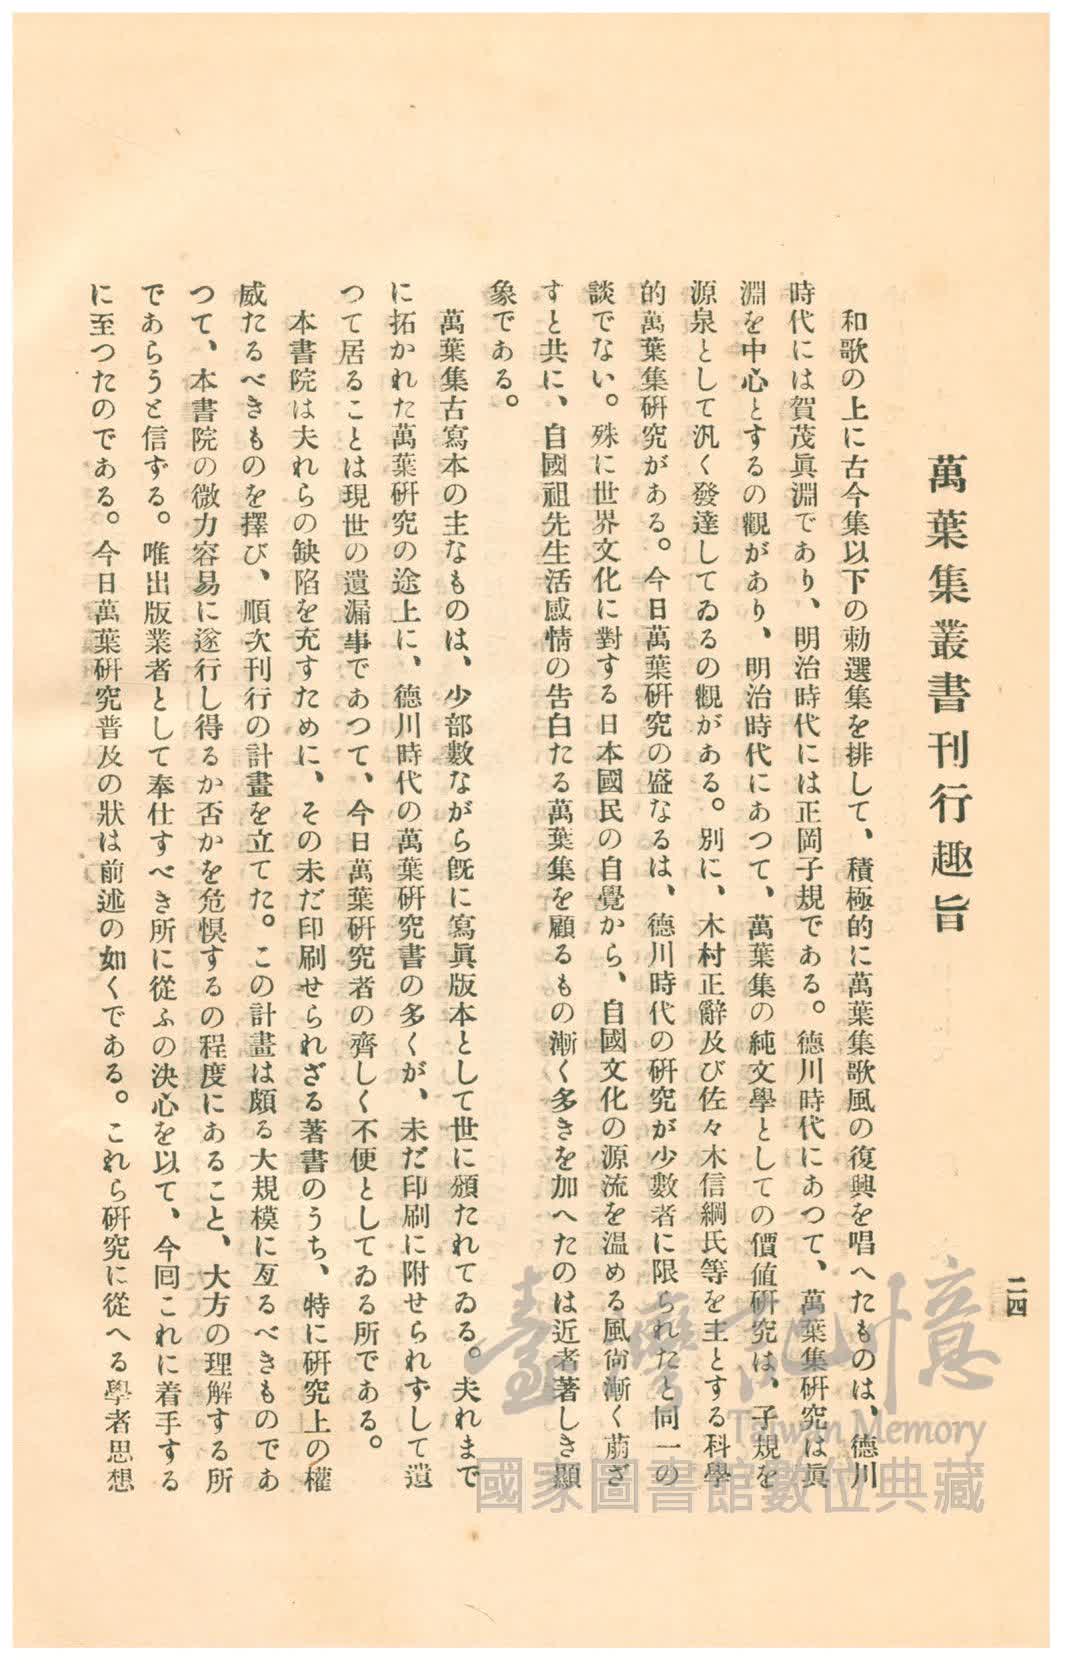 二四
萬葉集叢書刊行趣旨
和歌の上に古今集以下の勅選集を排して、積極的に萬葉集歌風の復興を唱へたものは、德川
時代には賀茂眞淵であり、明治時代には正岡子規である。德川時代にあつて、萬葉集研究は眞
淵を中心とするの觀があり、明治時代にあつて、萬葉集の純文學としての價値研究は、子規を
源泉として汎く發達してゐるの觀がある。別に、木村正辭及び佐々木信綱氏等を主とする科學
的萬葉集研究がある。今日萬葉研究の盛なるは、德川時代の研究が少數者に限られたと同一の
談でない。殊に世界文化に對する日本國民の自覺から、自國文化の源流を温める風尙漸く萠ざ
すと共に、自國祖先生活感情の告白たる萬葉集を顧るもの漸く多きを加へたのは近者著しき顯
象である。
萬葉集古寫本の主なものは、少部數ながら旣に寫眞版本として世に頒たれてゐる。夫れまで
に拓かれた萬葉研究の途上に、德川時代の萬葉研究書の多くが、未だ印刷に附せられずして遺
つて居ることは現世の遺漏事であつて、今日萬葉研究者の齊しく不便としてゐる所である。
本書院は夫れらの缺陷を充すために、その未だ印刷せられざる著書のうち、特に研究上の權
威たるべきものを擇び、順次刊行の計畫を立てた。この計畫は頗る大規模に亙るべきものであ
つて、本書院の微力容易に遂行し得るか否かを危惧するの程度にあること、大方の理解する所
であらうと信ずる。唯出版業者として奉仕すべき所に從ふの決心を以て、今囘これに着手する
に至つたのである。今日萬葉研究普及の狀は前述の如くである。これら研究に從へる學者思想
臺灣記憶
Taiwan Memory
國家圖書館數位典藏